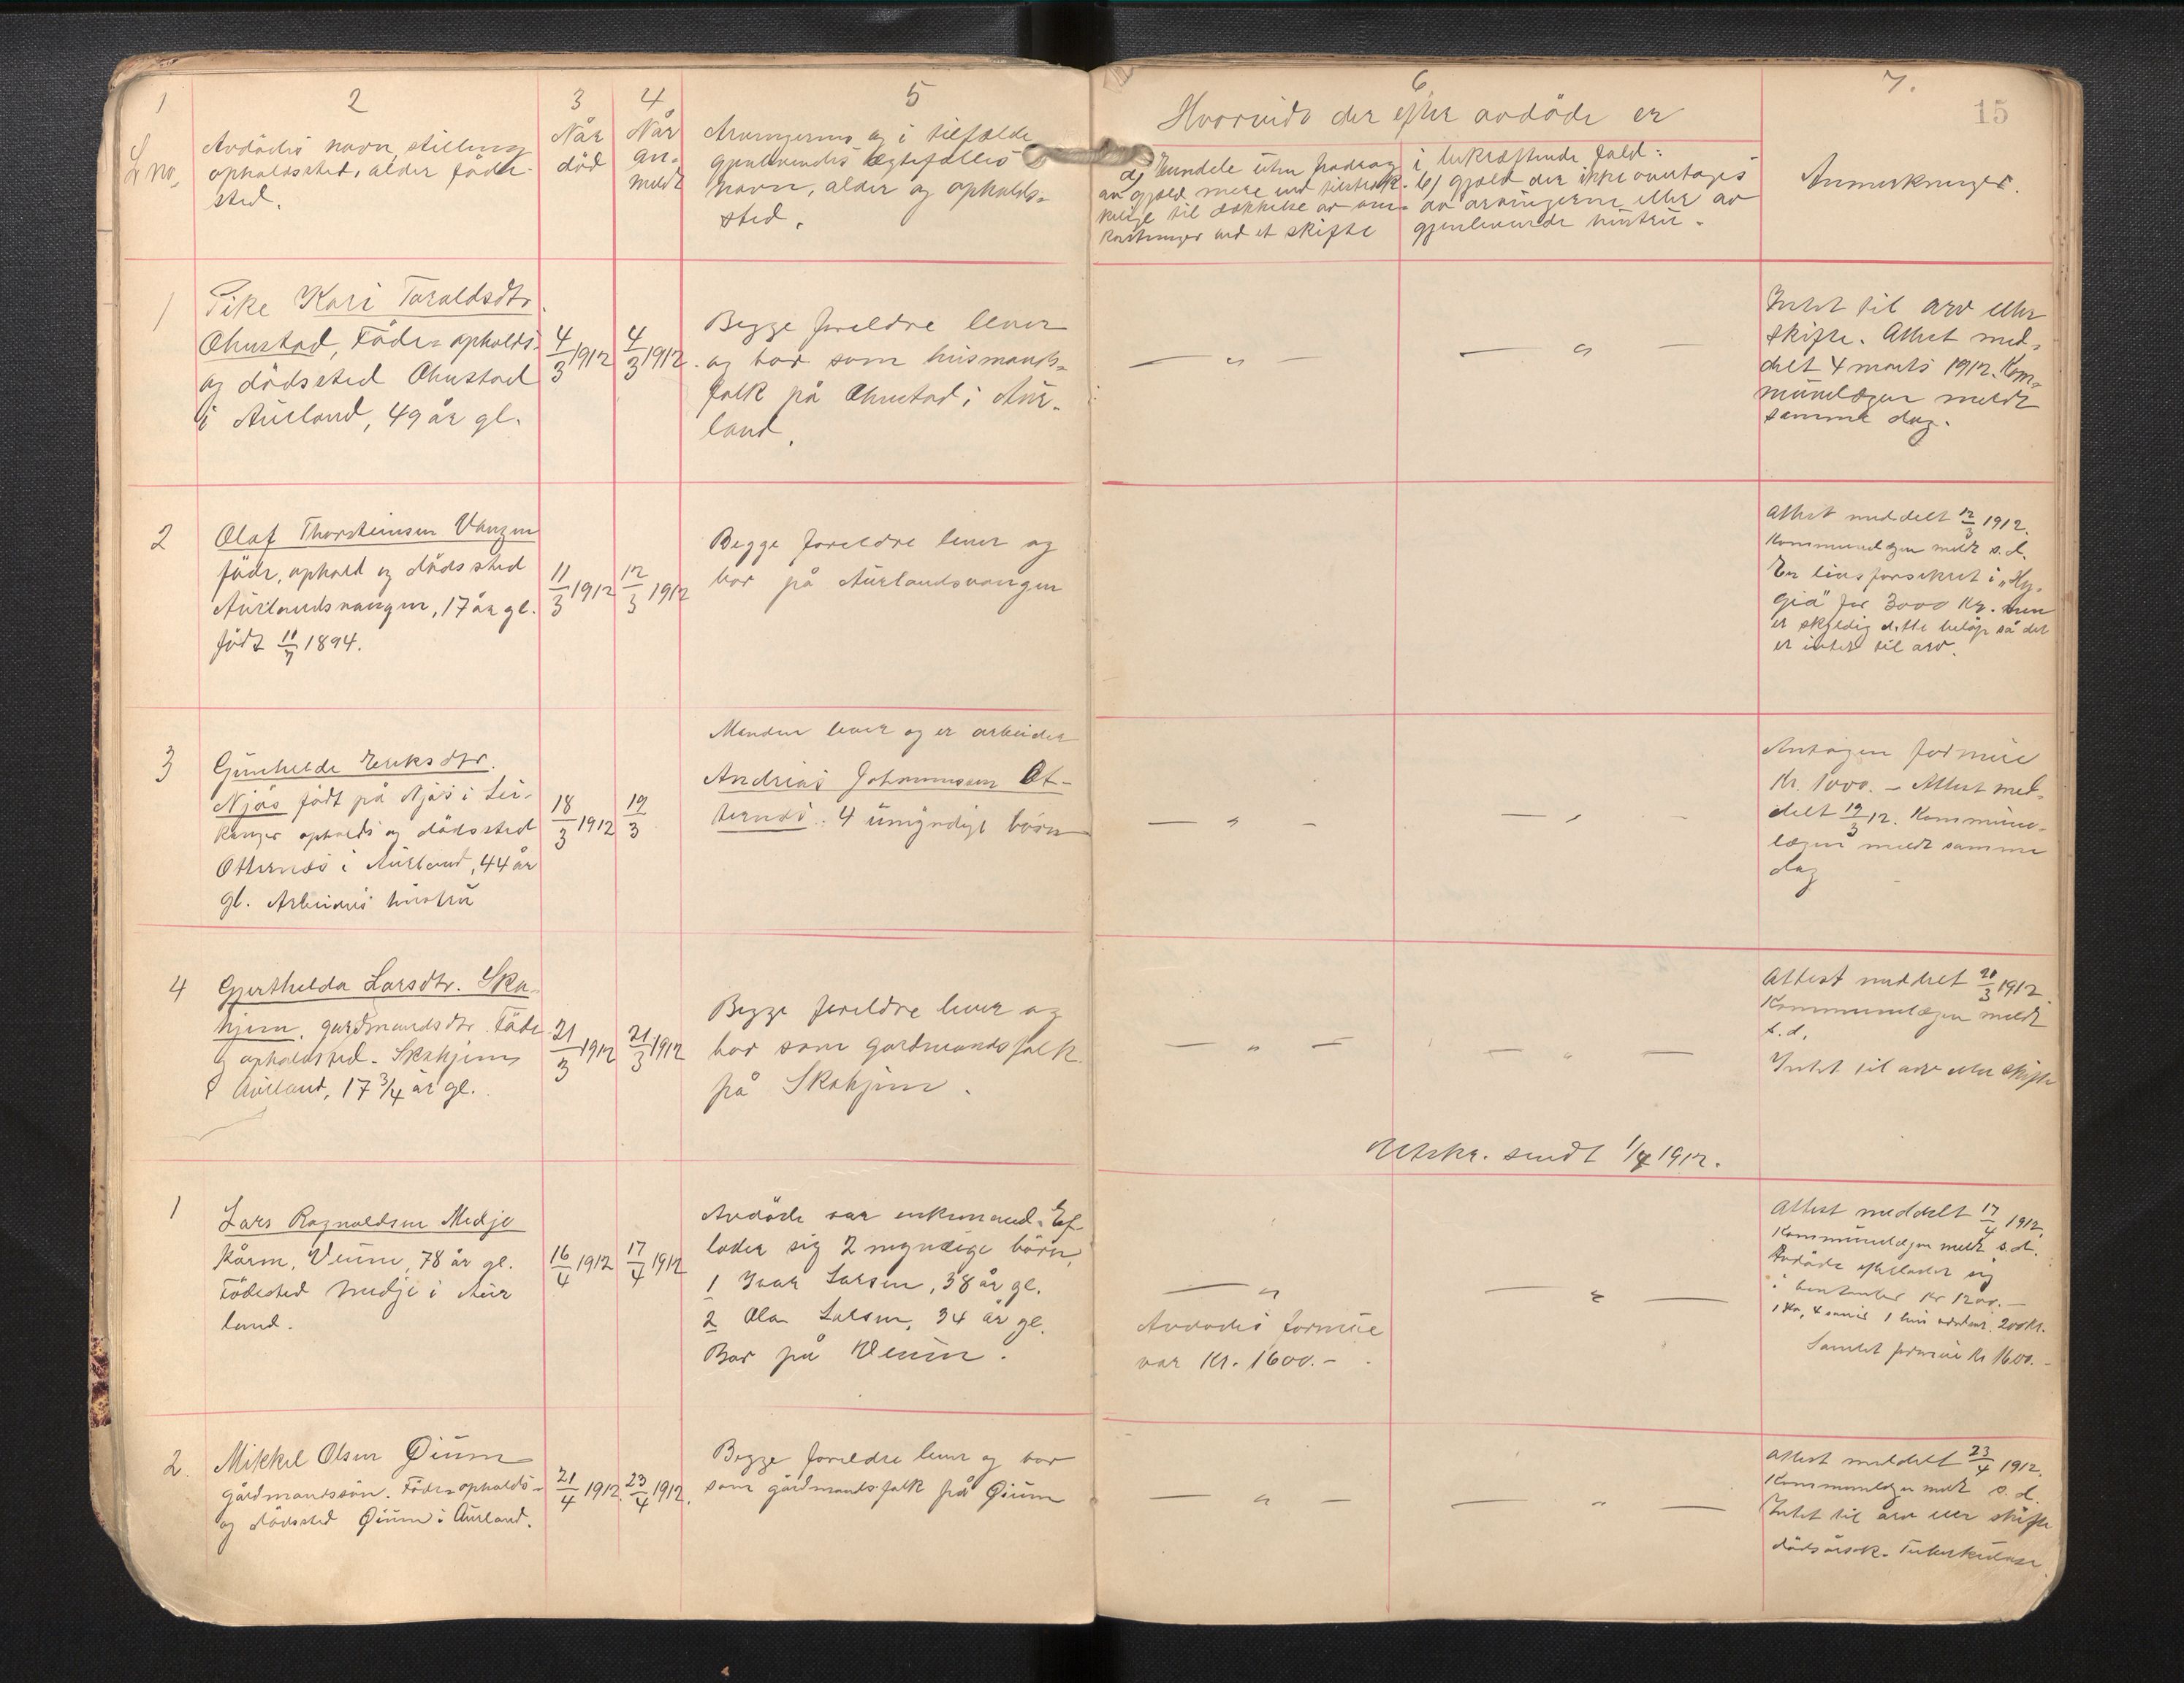 1
2
3
4
5
6
7.
15
L no,
Avdödes navn, stilling
opholdssted, alder föde-
sted.
Når
död
Når
an-
meldt
Arvingernes og i tilfælde
gjenlevendes ægtefælles
navn, alder og opholds-
sted.
Hvorvidt der efter avdöde er
a) Eiendele uten fradrag
av gjæld mere end tilstræk-
kelige til dækkelse av om-
kostninger ved et skifte
i bekræftende fald:
b) gjæld der ikke overtages
av arvingerne eller av
gjenlevende hustru.
Anmerkninger.
1
Pike Kari Taraldsdtr
Ohnstad, Föde- opholds-
og dödssted Ohnstad
i Aurland, 49 år gl.
4/3 1912
4/3 1912.
Begge foreldre lever
og bor som husmands-
folk på Ohnstad i Aur-
land.
— " —
— " —
Intet til arv eller
skifte. Attest med-
delt 4 marts 1912. Kom-
munelægen meldt
samme dag.
2
Olaf Thorsteinsen Vangen
föde, ophold og dödssted
Aurlandsvangen, 17 år gl.
födt 11/7 1894.
11/3 1912
12/3 1912
Begge foreldre lever og
bor på Aurlandsvangen
Attest meddelt 12/3 1912.
Kommunelægen meldt s.d.
Er livsforsikret i "Hy-
giea" for 3000 Kr. men
er skyldig dette belöp så det
er intet til arv.
3
Gunhilde Eriksdtr.
Njøs födt på Njøs i Lei-
kanger opholds og dödssted
Otternes i Aurland, 44 år
gl. Arbeiders hustru
18/3 1912
19/3
Manden lever og er arbeider
Andreas Johannessen Ot-
ternes. 4 umyndige börn
— " —
— " —
Antagen formue
Kr. 1000. - Attest med-
delt 19/3 12. Kommune-
lægen meldt samme
dag
4
Gjerthilda Larsdtr. Ska-
hjem, gardmandsdtr. Föde
og opholdssted - Skahjem
i Aurland, 17 3/4 år gl.
21/3 1912
21/3 1912
Begge foreldre lever og
bor som gardmandsfolk
på Skahjem.
— " —
— " —
Attest meddelt 21/3 1912.
Kommunelægen meldt
s.d.
Intet til arv eller skifte
Utskr. sendt 1/4 1912.
1
Lars Ragnvaldsen Medje
kårm, Veum, 78 år gl.
Födested Medje i Aur
land.
16/4 1912
17/4 1912
Avdöde var enkemand. Ef-
lader sig 2 myndige börn,
1 Ivar Larsen, 38 år gl.
2 Ola Larsen, 34 år gl.
Bor på Veum.
— "
Avdødes formue
var Kr. 1600.-
— " —
Attest meddelt 17/4 1912.
Kommunelægen meldt s.d.
Avdøde efterlader sig
i kontanter kr 1200.-
Samlet formue Kr 1600.-
2.
Mikkel Olsen Øium
gårdmandssön. Föde- opholds-
og dödssted Øium i Aurland.
21/4 1912.
23/4 1912.
Begge foreldre lever og bor
som gårdmandsfolk på Øium
— " —
— " —
Attest meddelt 23/4 1912.
Kommunelægen meldt s.d.
Intet til arv eller skifte
dödsårsak. Tuberkulose.